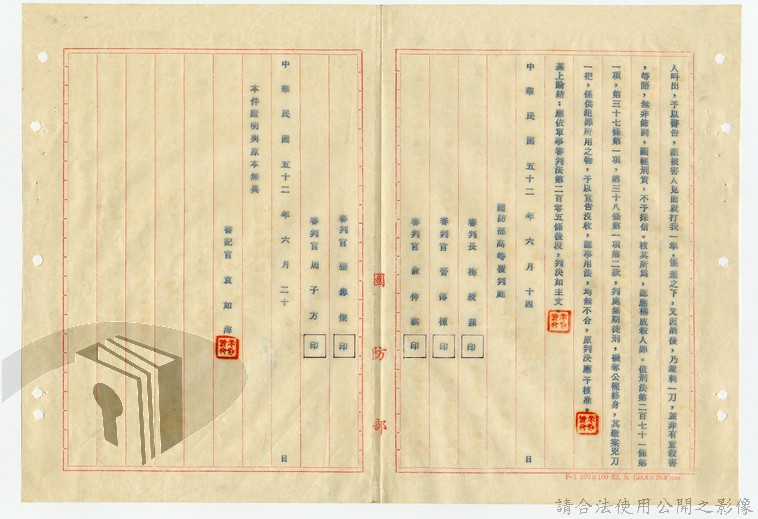 人叫出，予以警告，詎被害人見面就打我一拳，怪羞之下，又因酒後，乃還刺一刀，並非有意殺害
，等語，無非飾詞，圖輕刑責，不予採信。核其所為，應應構成殺人罪。依刑法第二百七十一條第
一項，第三十七條第一項，第三十八條第一項第二款，判處無期徒刑，褫奪公權終身，其繳案兇刀
一把，係供犯罪所用之物，予以宣告沒收，認事用法，均無不合，原判決應予核准。
基上論結：應依軍事審判法第二百零五條後段，判決如主文
中華民國五十二年六月十四日
國防部高等覆判庭
審判長
審判官
審判官
審判官
審判官 周子方 印
中華民國五十二年六月二十日
本件證明與原本無異
書記官 袁如海
國防部
請合法使用公開之影像